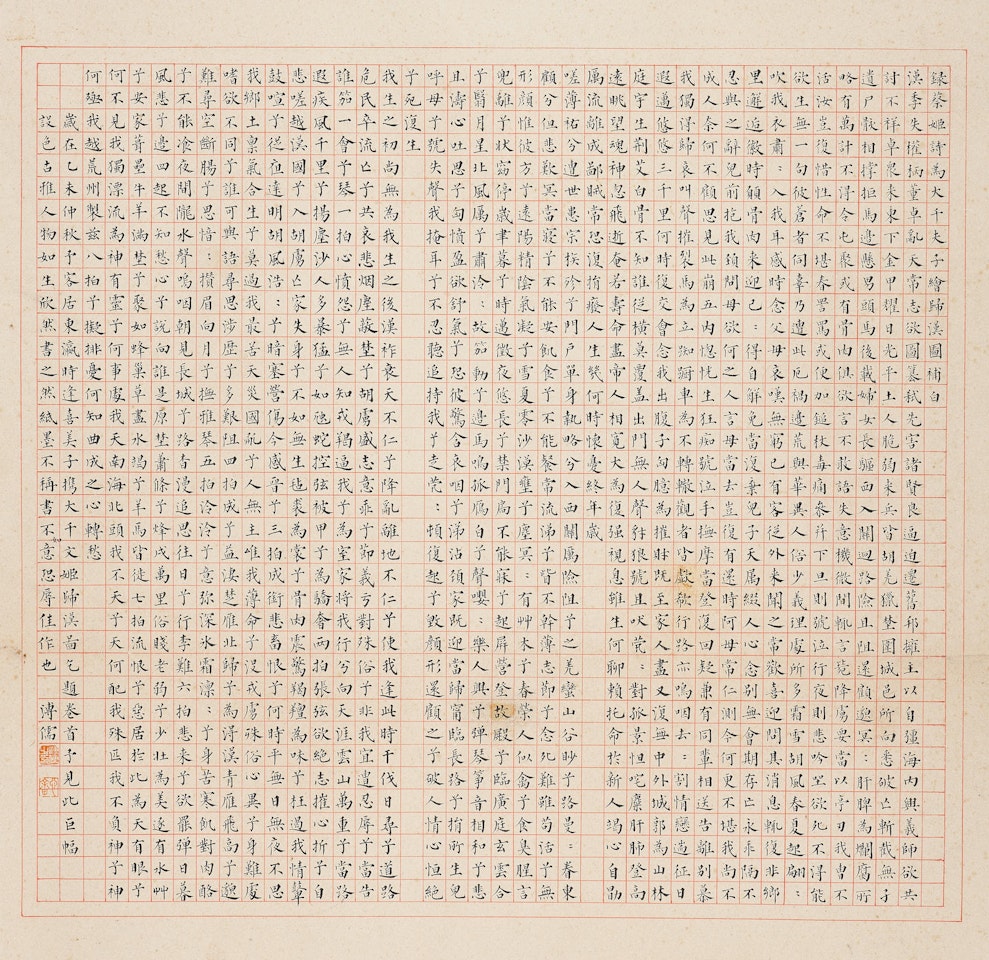 錄蔡姬詩為大千夫子繪歸漢圖補白
漢季失權柄董卓亂天常志欲圖篡弒先害諸賢良逼迫遷舊邦擁主以自彊海內興義師欲共
討不祥卓眾來東下金甲耀日光平土人脆弱來兵皆胡羌獵埜圍城邑所向悉破亡斬截無孑
遺尸骸相撐拒馬邊懸男頭馬後載婦女長驅西入關迴路險且阻還顧邈冥〻肝脾為爛腐所
略有萬計不得令屯聚或有骨肉俱欲言不敢語失意機微間輒言斃降虜要當以亭刃我曹不
活汝豈復惜性命不堪其詈罵或便加箠杖毒痛參并下旦則號泣行夜則悲吟坐欲死不得能
欲生無一可彼蒼者何辜乃遭此厄禍邊荒與華異人俗少義理處所多霜雪胡風春夏起翩〻
吹我衣肅〻入我耳感時念父母哀嘆無窮已有客從外來聞之常歡喜迎問其消息輒復非鄉
里邂逅徼時願骨肉來迎己〻得自解免當復棄兒子天屬綴人心念別無會期存亡永乖隔不
忍與之辭兒前抱我頸問母欲何之人言母當去豈復有還時阿母常仁惻今何更不慈我尚未
成人奈何不顧思見此崩五內恍惚生狂痴號泣手撫摩當發復回疑兼有同輩相送告離別慕
我獨得歸哀叫聲摧裂馬為立踟躕車為不轉轍觀者皆歔欷行路亦嗚咽去〻割情戀遄征日
遐邁悠悠三千里何時復交會念我出腹子胸臆為摧敗既至家人盡又復無中外城郭為山林
庭宇生荊艾白骨不知誰從橫莫覆蓋出門無人聲豺狼號且吠煢〻對孤景怛咤糜肝肺登高
遠眺望魂神忽飛逝奄若壽命盡帝人相寬大為復強視息雖生何聊賴托命於新人竭心自勖
厲流離成鄙賤常恐復捐廢人生幾何時懷憂終年歲
嗟薄祜兮遭世患宗族殄兮門戶單身執略兮入西關歷險阻兮之羌蠻山谷眇兮路曼〻眷東
顧兮但悲歎冥當寢兮不能安飢當食兮不能餐常流涕兮眥不乾薄志節兮念死難雖苟活兮無
形顏惟彼方兮遠陽精陰氣凝兮雪夏零沙漠壅兮塵冥〻有艸木兮春不榮人似禽兮食臭腥言
兜離兮狀窈停歲聿暮兮時邁徵夜悠長兮禁門扃不能寐兮起屏營登故殿兮臨廣庭玄雲合
兮翳月星北風厲兮肅泠〻故笳動兮邊馬鳴孤雁歸兮聲嚶〻樂人興兮彈琴箏音相和兮悲
且清心吐思兮匈憤盈欲舒氣兮恐彼驚含哀咽兮涕沾頸家既迎兮當歸甯臨長路兮捐所生兒
呼母兮號失聲我掩耳兮不忍聽追持我兮走煢〻頓復起兮毀顏形還顧之兮破人情心怛絕
兮死復生
我生之初尚無為我生之後漢祚衰天不仁兮降亂離地不仁兮使我逢此時干戈日尋兮道路
危民卒流亡兮共哀悲烟塵蔽埜兮胡虜盛志意乖兮節義虧對殊俗兮非我宜遭忍辱兮當告
誰笳一會兮琴一拍心憤怨兮無人知戎羯逼我兮為室家將我行兮向天涯雲山萬重兮歸路
遐疾風千里兮揚塵沙人多暴猛兮如虺蛇控弦被甲兮為驕奢兩拍張弦兮弦欲絕志摧心折兮自
悲嗟越漢國兮入胡虜亡家失身兮不如無生氊裘為裳兮骨肉震驚羯羶為味兮枉遏我情鼙
鼓喧兮從夜達明胡風浩〻兮暗塞營傷今感昔兮三拍成銜悲畜恨兮何時平無日無夜兮不思
我鄉土稟氣含生兮莫過我最苦天災國亂兮人無主唯我薄命兮沒戎虜殊俗心異兮身難處
嗜欲不同兮誰可與語尋思涉歷兮多艱阻四拍成兮益淒楚雁北歸兮為得漢音雁飛高兮邈
難尋空斷腸兮思愔〻攢眉向月兮撫雅琴五拍泠泠兮意弥深冰霜凜〻兮身苦寒飢對肉酪
兮不能飡夜聞隴水兮聲嗚咽朝見長城兮路杳漫追思往日兮行李難六拍悲來兮欲罷彈日暮
風悲兮邊四起不知愁心兮說向誰是原埜蕭條兮烽戍萬里俗賤老弱兮少壯為美逐有水艸
兮安家葺壘牛羊滿埜兮聚如蜂蟻草盡水竭兮羊馬皆徙七拍流恨兮惡居於此為天有眼兮
何不見我獨漂流為神有靈兮何事處我天南海北頭我不負天兮天何配我殊匹我不負神兮神
何殛我越荒州製茲八拍兮擬排憂何知曲成兮心轉愁
歲在乙未仲秋予客居東瀛時逢喜美子攜大千文姬歸漢圖乞題卷首予見此巨幅
設色古雅人物如生欣然書之然紙墨不稱書不盡意恐辱佳作也 溥儒